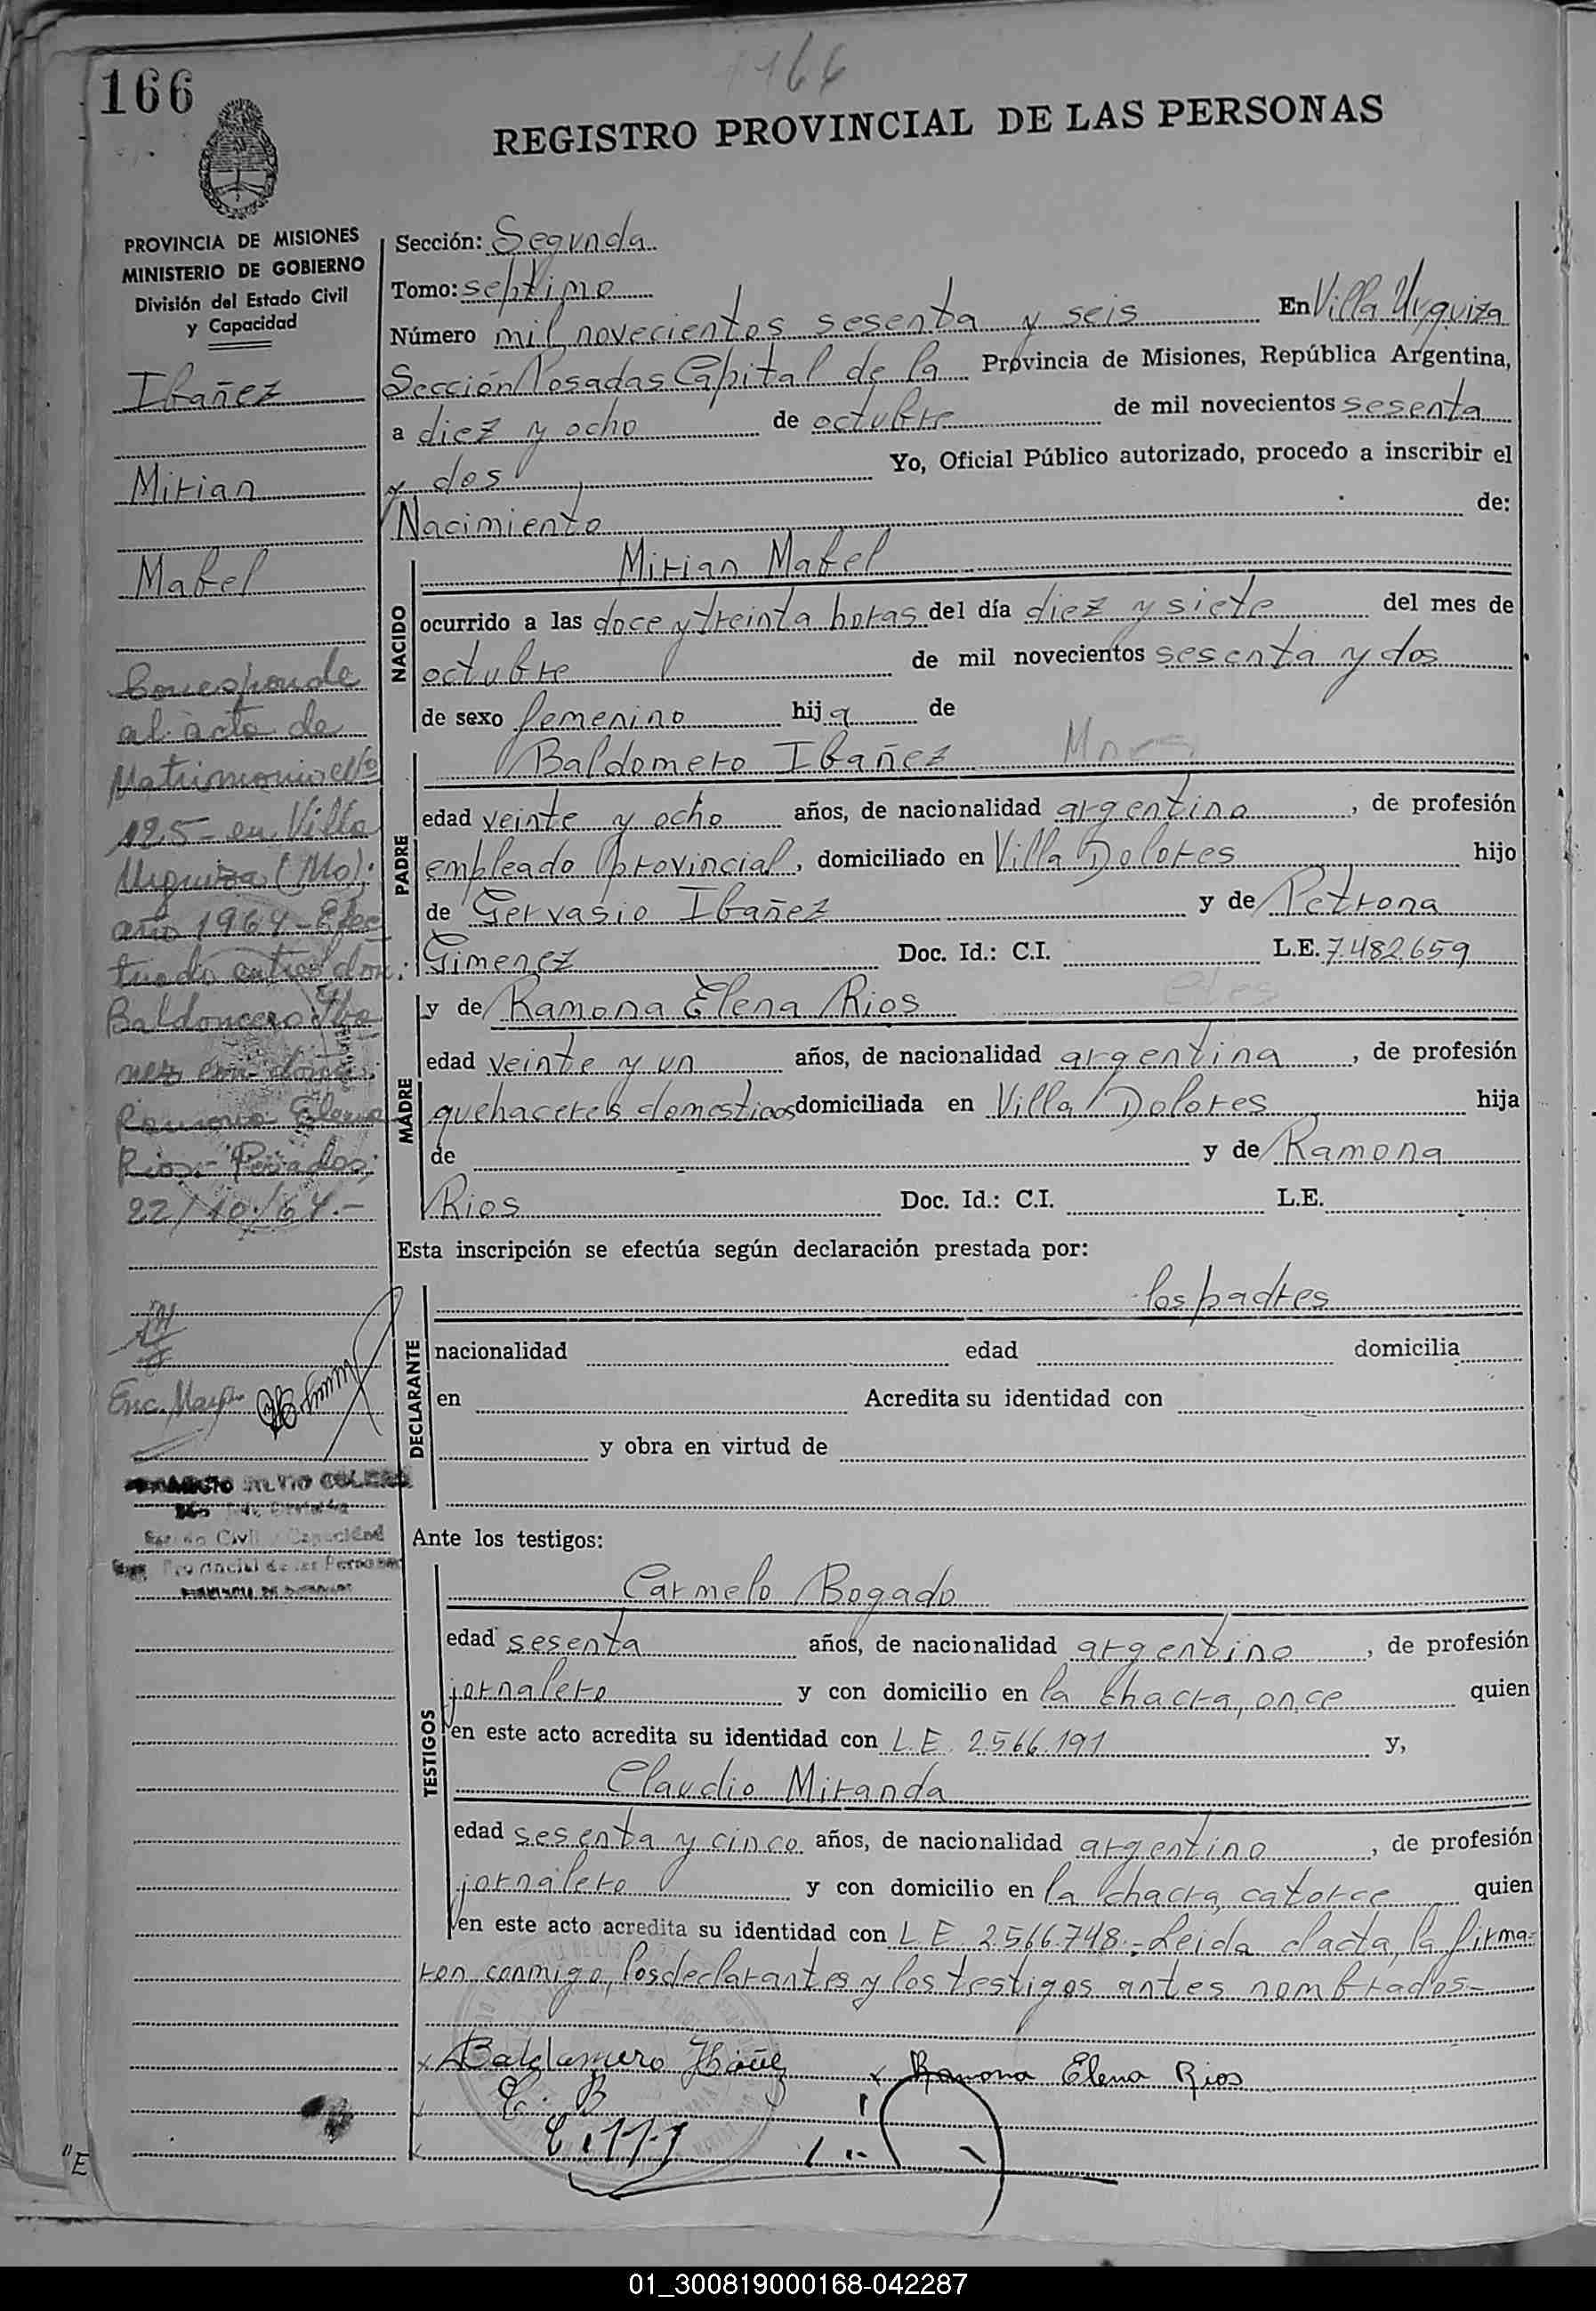 166
166
REGISTRO PROVINCIAL DE LAS PERSONAS
PROVINCIA DE MISIONES
MINISTERIO DE GOBIERNO
División del Estado Civil
y Capacidad
Ibañez
Mirian
Mabel
Corresponde
al acta de
Matrimonio Nº
125 - en Villa
Urquiza (Mo);
año 1964 - Efec
tuado entre don:
Baldomero Iba
nez con doña:
Ramona Elena
Rios.- Posadas,
22/10/64.-
Enc. Mayo
Estado Civil y Capacidad
Reg. Provincial de las Personas
Sección: Segunda
Tomo: septimo
Número mil novecientos sesenta y seis En Villa Urquiza
Sección Posadas Capital de la Provincia de Misiones, República Argentina,
a diez y ocho de octubre de mil novecientos sesenta
y dos Yo, Oficial Público autorizado, procedo a inscribir el
Nacimiento de:
NACIDO
Mirian Mabel
ocurrido a las doce y treinta horas del día diez y siete del mes de
octubre de mil novecientos sesenta y dos
de sexo femenino hija de
PADRE
Baldomero Ibañez
edad veinte y ocho años, de nacionalidad argentino, de profesión
empleado provincial, domiciliado en Villa Dolores hijo
de Gervasio Ibañez y de Petrona
Gimenez Doc. Id.: C.I. L.E. 7.482.659
MADRE
y de Ramona Elena Rios
edad veinte y un años, de nacionalidad argentina, de profesión
quehaceres domesticos domiciliada en Villa Dolores hija
de y de Ramona
Rios Doc. Id.: C.I. L.E.
Esta inscripción se efectúa según declaración prestada por:
DECLARANTE
los padres
nacionalidad edad domicilia
en Acredita su identidad con
y obra en virtud de
Ante los testigos:
TESTIGOS
Carmelo Bogado
edad sesenta años, de nacionalidad argentino, de profesión
jornalero y con domicilio en la chacra once quien
en este acto acredita su identidad con L.E. 2.566.191 y,
Claudio Miranda
edad sesenta y cinco años, de nacionalidad argentino, de profesión
jornalero y con domicilio en la chacra catorce quien
en este acto acredita su identidad con L.E. 2.566.748.- Leida el acta, la firma-
ron conmigo, los declarantes y los testigos antes nombrados.-
x Baldomero Ibañez x Ramona Elena Rios
C. B
"E
01_300819000168-042287